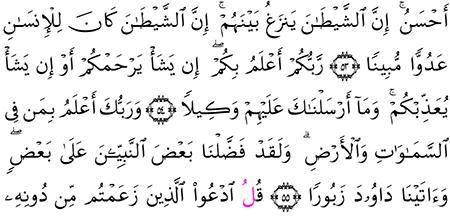 أَحْسَنُ ۚ إِنَّ ٱلشَّيْطَـٰنَ يَنزَغُ بَيْنَهُمْ ۚ إِنَّ ٱلشَّيْطَـٰنَ كَانَ لِلْإِنسَـٰنِ
عَدُوًّا مُّبِينًا ﴿٥٣﴾ رَّبُّكُمْ أَعْلَمُ بِكُمْ ۖ إِن يَشَأْ يَرْحَمْكُمْ أَوْ إِن يَشَأْ
يُعَذِّبْكُمْ ۚ وَمَآ أَرْسَلْنَـٰكَ عَلَيْهِمْ وَكِيلًا ﴿٥٤﴾ وَرَبُّكَ أَعْلَمُ بِمَن فِى
ٱلسَّمَـٰوَٰتِ وَٱلْأَرْضِ ۗ وَلَقَدْ فَضَّلْنَا بَعْضَ ٱلنَّبِيِّـۧنَ عَلَىٰ بَعْضٍ ۖ
وَءَاتَيْنَا دَاوُۥدَ زَبُورًا ﴿٥٥﴾ قُلِ ٱدْعُوا۟ ٱلَّذِينَ زَعَمْتُم مِّن دُونِهِۦ